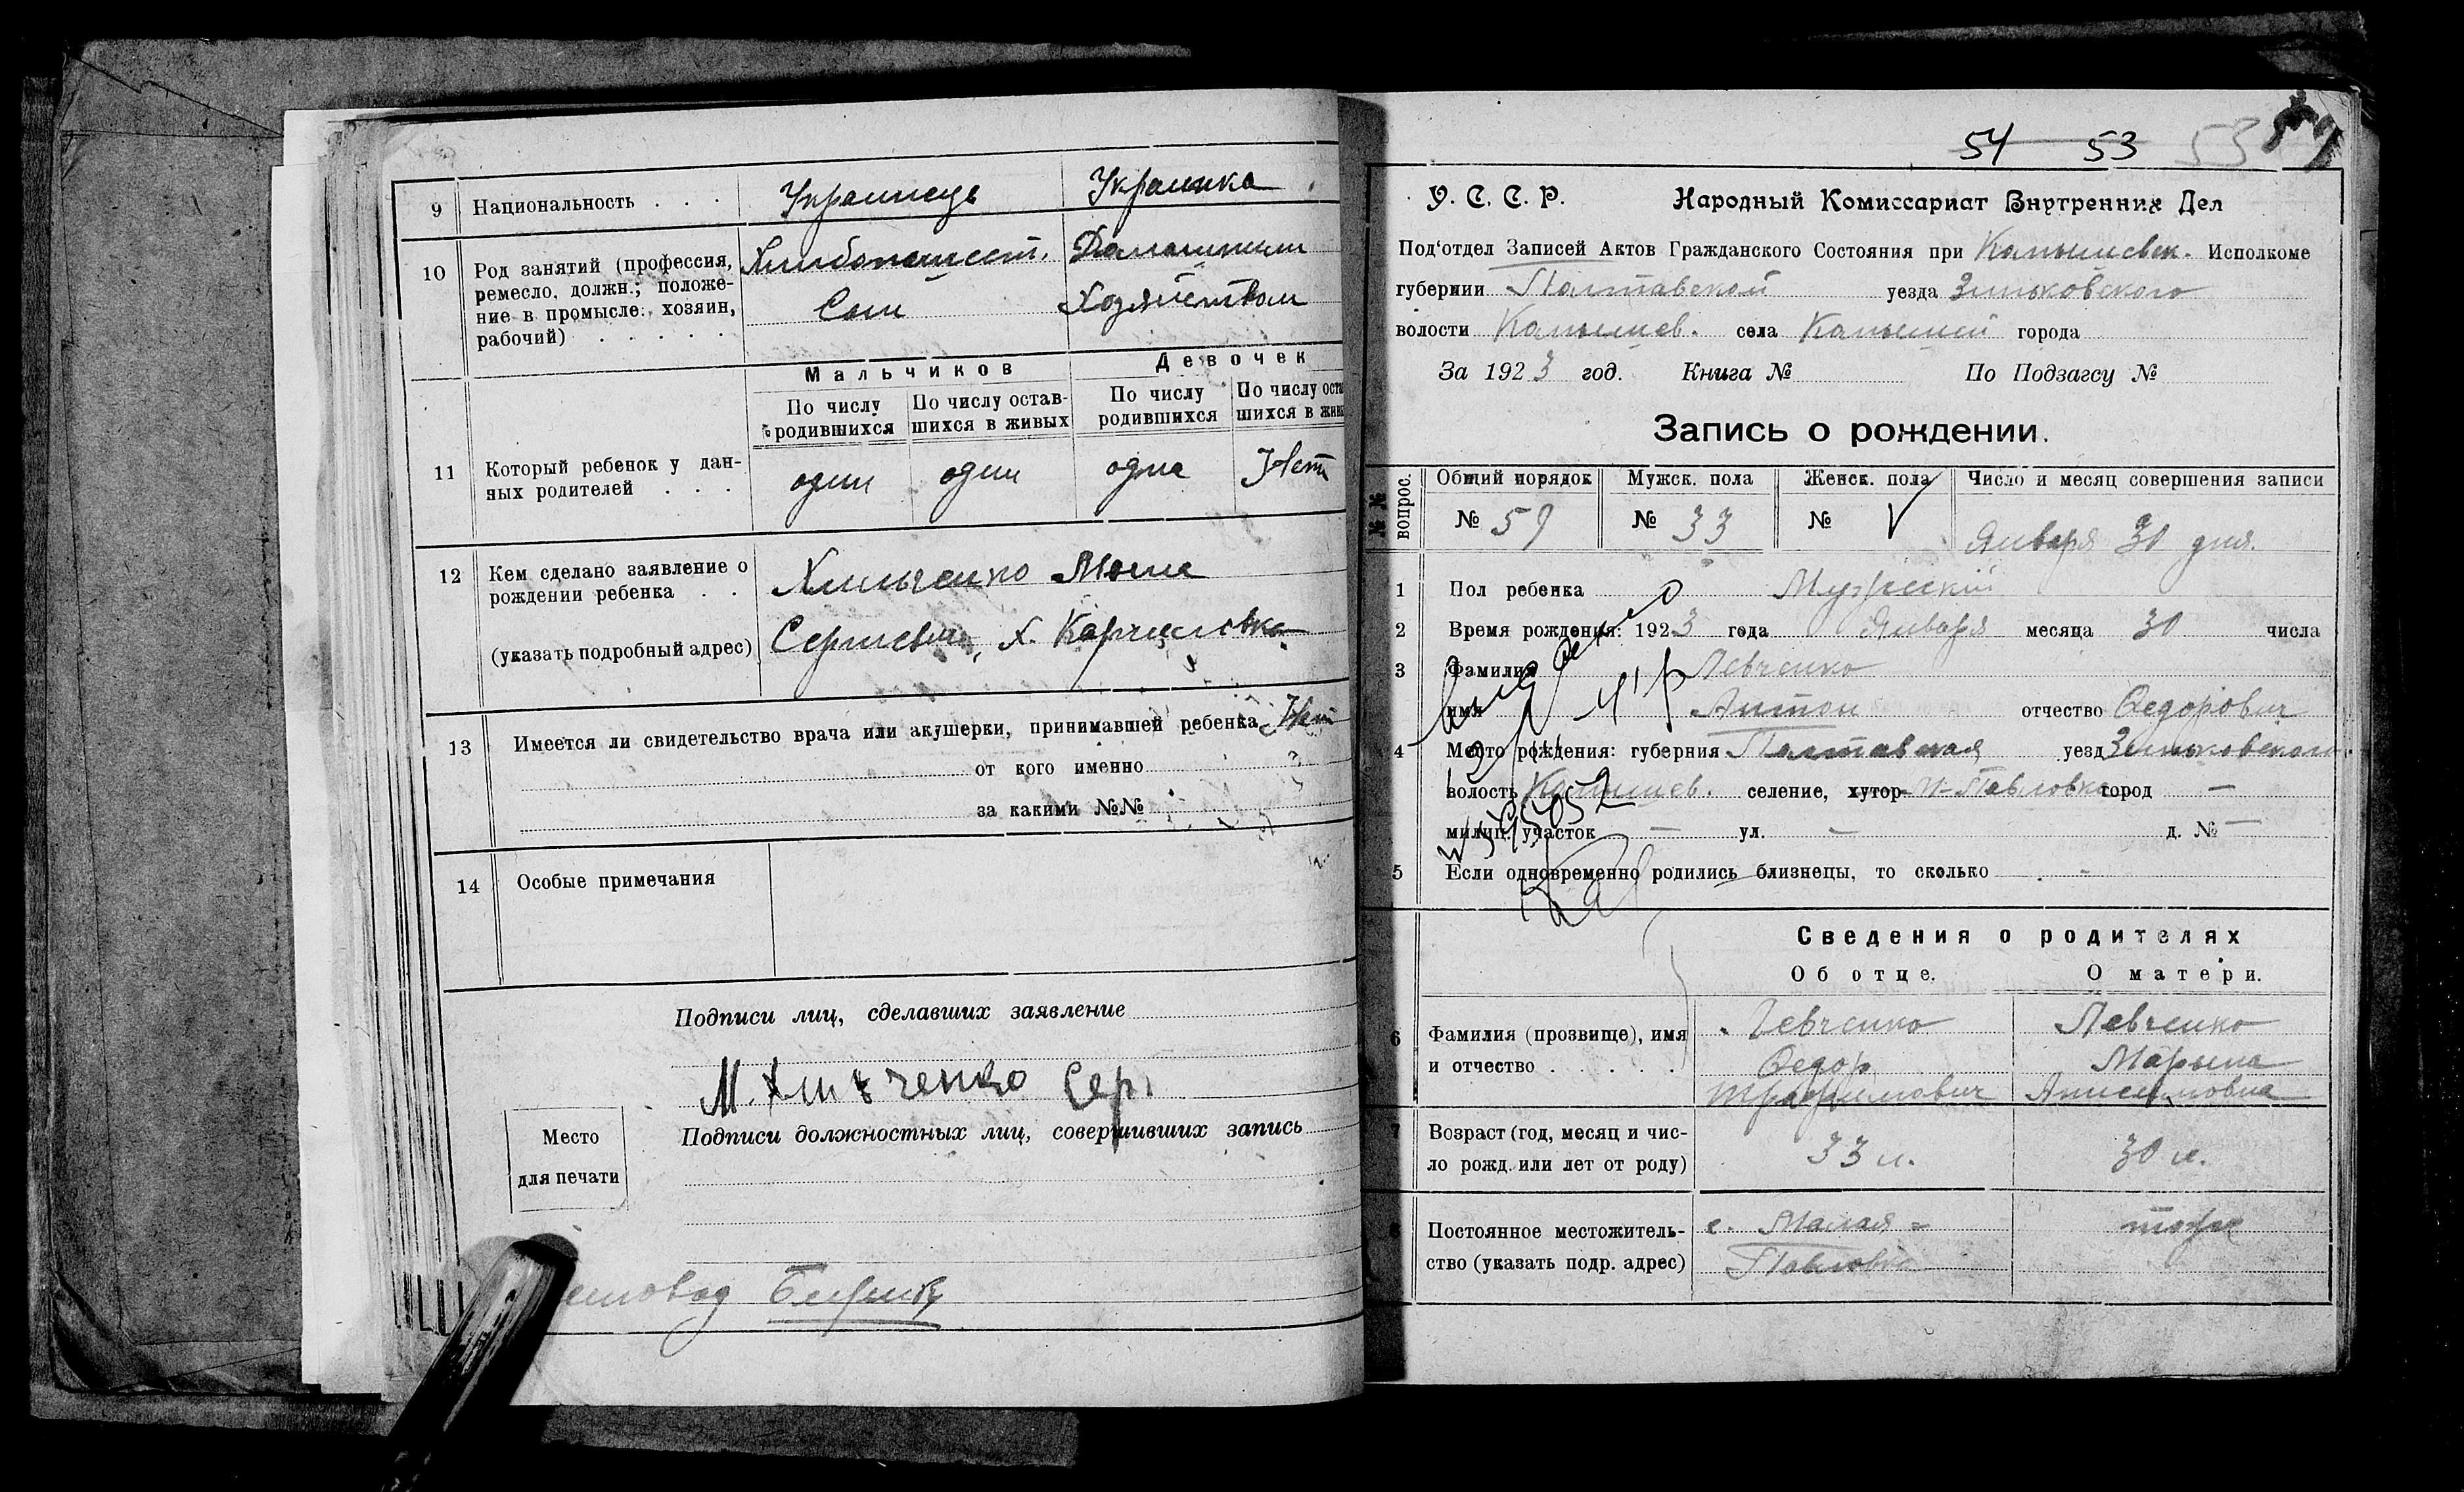 9 Национальность . . . Украинец Украинка
10 Род занятий (профессия, ремесло, должн.; положение в промысле: хозяин, рабочий) . . . . . Хлибопашест. Домашним
Сам Хозяйством
Мальчиков Девочек
По числу родившихся По числу оставшихся в живых По числу родившихся По числу оста шихся в жив
11 Который ребенок у данных родителей . . . один один одна Нет
12 Кем сделано заявление о рождении ребенка . . Хильченко
(указать подробный адрес) Сергиевич, х.
13 Имеется ли свидетельство врача или акушерки, принимавшей ребенка Нет
от кого именно
за какими №№
14 Особые примечания
Подписи лиц, сделавших заявление
М. Хильченко Сер
Место
для печати
Подписи должностных лиц, совершивших запись
54 53 53
У. С. С. Р. Народный Комиссариат Внутренних Дел
Под'отдел Записей Актов Гражданского Состояния при Исполкоме
губернии Полтавской уезда Зиньковского
волости села города
За 1923 год. Книга № По Подзагсу №
Запись о рождении.
№№ вопрос. Общий порядок Мужск. пола Женск. пола Число и месяц совершения записи
№ 59 № 33 № Января 30 дня.
1 Пол ребенка Мужский
2 Время рождения: 1923 года Января месяца 30 числа
3 Фамилия Левченко
имя Антон отчество Федорович
4 Место рождения: губерния Полтавская уезд Зиньковского
волость селение, хутор М-Павловка город —
милиц. участок — ул. — д. № —
5 Если одновременно родились близнецы, то сколько -
Сведения о родителях
Об отце. О матери.
6 Фамилия (прозвище), имя Левченко Левченко
и отчество . . . . . Федор Марына
Трофимович Анисимовна
7 Возраст (год, месяц и число рожд. или лет от роду) 33 л. 30 л.
8 Постоянное местожительство (указать подр. адрес) с. Малая = тоже
Павловка